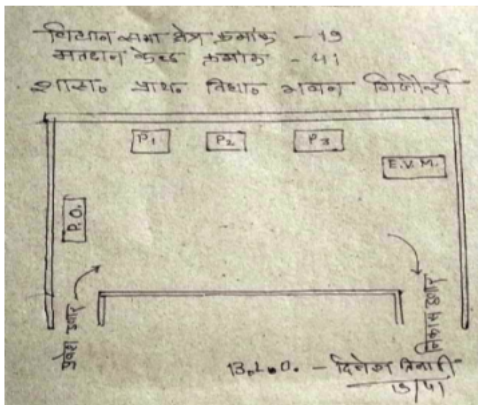 विधान सभा क्षेत्र क्रमांक - 19
मतदान केन्द्र क्रमांक - 41
शास० प्राथ० विद्या० भवन
P1 P2 P3
E.V.M.
P.O.
प्रवेश द्वार
निकास द्वार
B.L.O. - दिनेश तिवारी
19/41